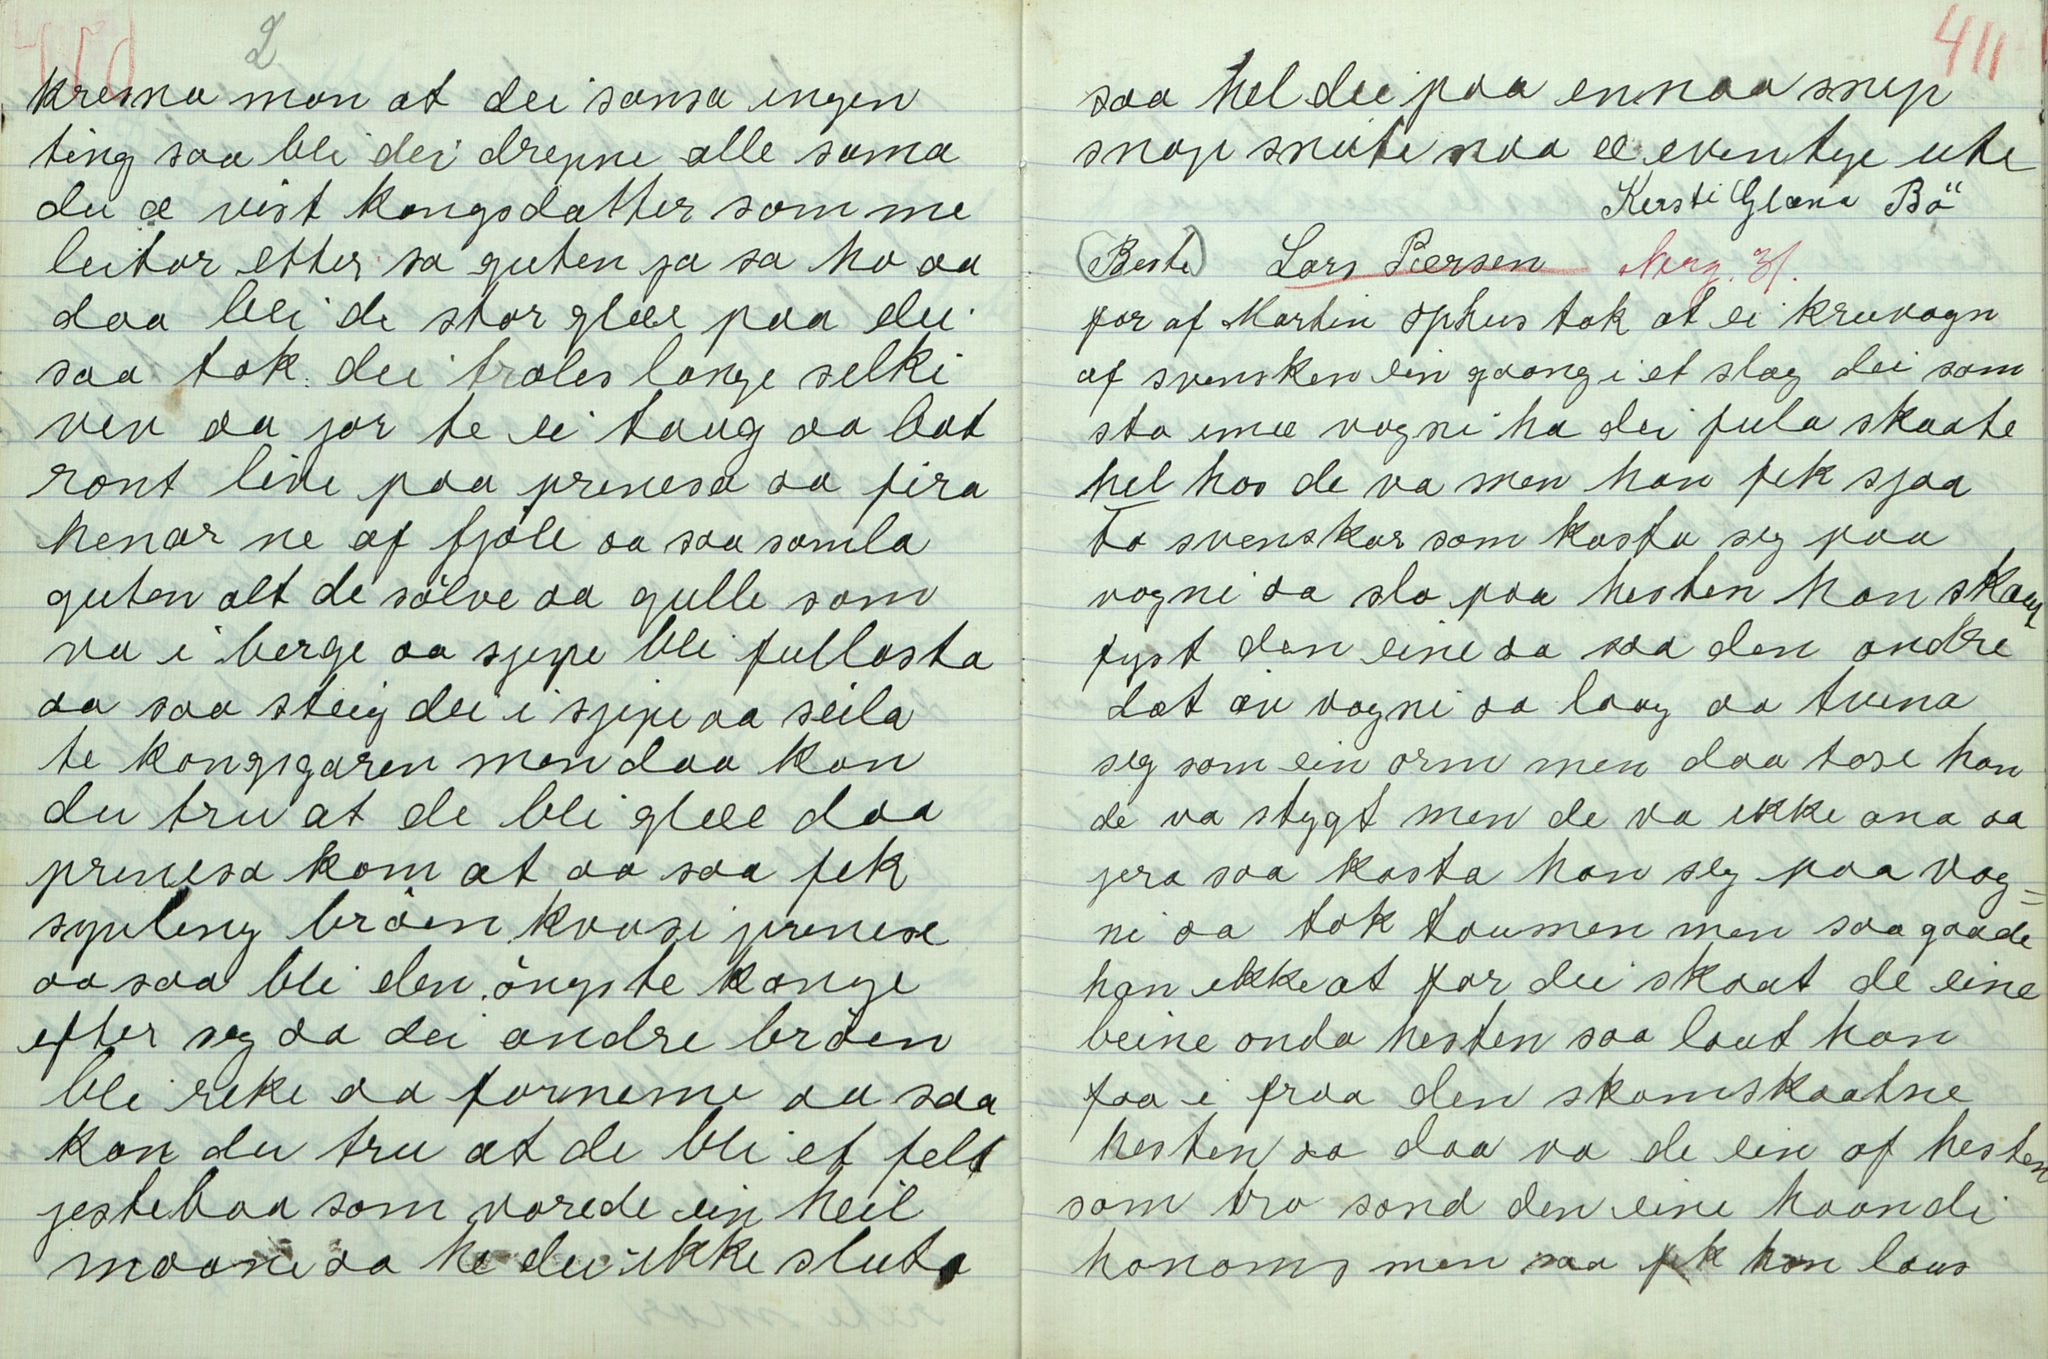 2
kresna man at dei sansa ingen
ting saa blei dei drepne alle sama
du æ vist kongsdatter som me
leitar etter sa guten ja sa ho aa
daa blei de stor glæe paa dei
saa tok dei troles lange selki
ven aa jor te ei taug aa bat
ront live paa prinesa aa fira
henar ne af fjöle aa saa samla
guten alt de sölve aa gulle som
va i berge aa sjepe blei fullasta
aa saa steig dei i sjepe aa seila
te kongsgaren men daa kan
du tru at de blei glæe daa
prinesa kom at aa saa fek
syuleng bröen kvaasi prinese
aa saa blei den öngste konge
efter seg aa dei andre bröen
blei reke aa forneme aa saa
kan du tru at de blei et felt
jestebaa som varede ein heil
maane aa he dei ikke sluta
411
saa hel dei paa ennaa snip
snap snute naa æ eventye ute
Kersti Glæna Bö
(Beste) Lars Pæersen Norg. 31.
far af Martin Ophus tok at ei kruvogn
af svensken ein gaang i et slag dei som
sto imæ vogni ha dei fula skaate
hel hos de va men han fek sjaa
To svenskar som kasta seg paa
vogni aa slo paa hesten han skaut
fyst den eine aa saa den andre
dat av vogni aa laag aa tvena
seg som ein orm men daa tose han
de va stygt men de va ikke ana aa
jera saa kasta han seg paa vog=
ni aa tok taumen men saa gaade
han ikke at for dei skaat de eine
beine onda hesten saa laut han
faa i fraa den skamskaatne
hesten aa daa va de ein af hesten
som tra sond den eine haandi
honoms men saa fek han laus